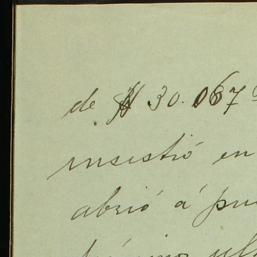 de $ 30.067
insistió en
abrió á